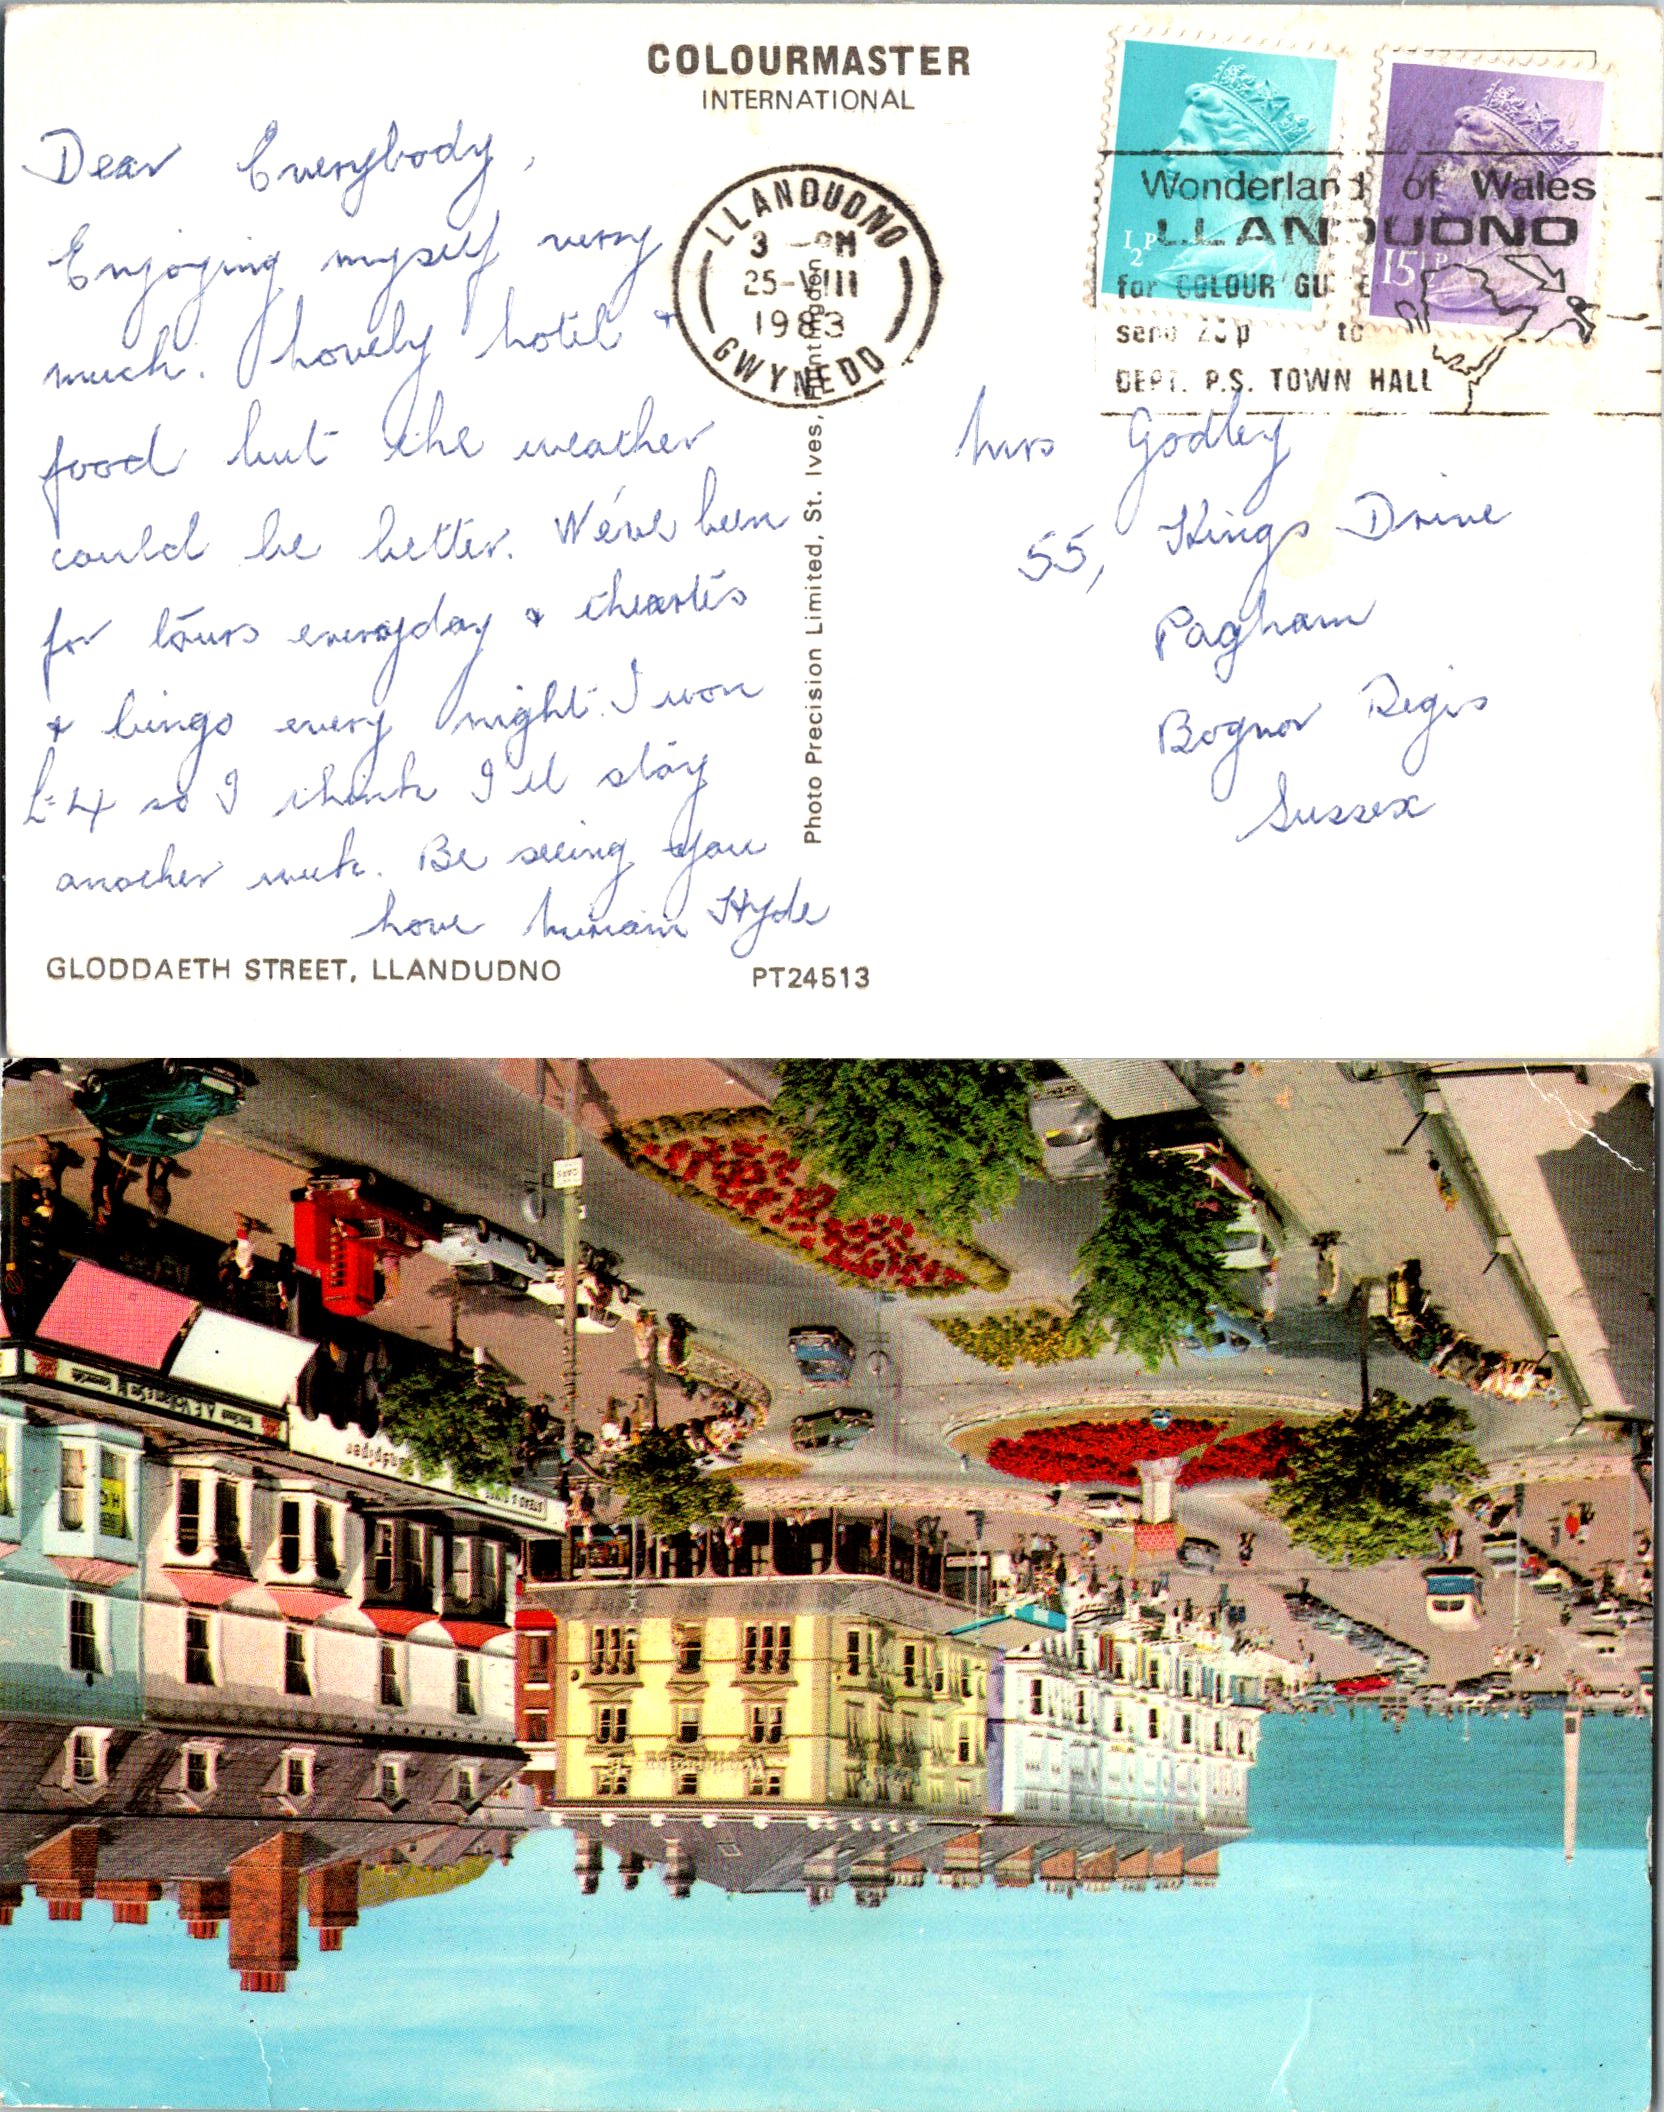 COLOURMASTER
INTERNATIONAL
Dear Everybody,
Enjoying myself very
much. Lovely hotel &
food but the weather
could be better. We've been
for tours everyday & theartes
& bingo every night. I won
£4 so I think I'll stay
another week. Be seeing you
Love Miriam Hyde
GLODDAETH STREET, LLANDUDNO
PT24513
Photo Precision Limited, St. Ives, Huntingdon
LLANDUDNO
3 - PM
25-VIII
1983
GWYNEDD
½P
15½P
Wonderland of Wales
LLANDUDNO
for COLOUR GUIDE
send to
DEPT. P.S. TOWN HALL
Mrs Godley
55, Kings Drive
Pagham
Bognor Regis
Sussex
CARS